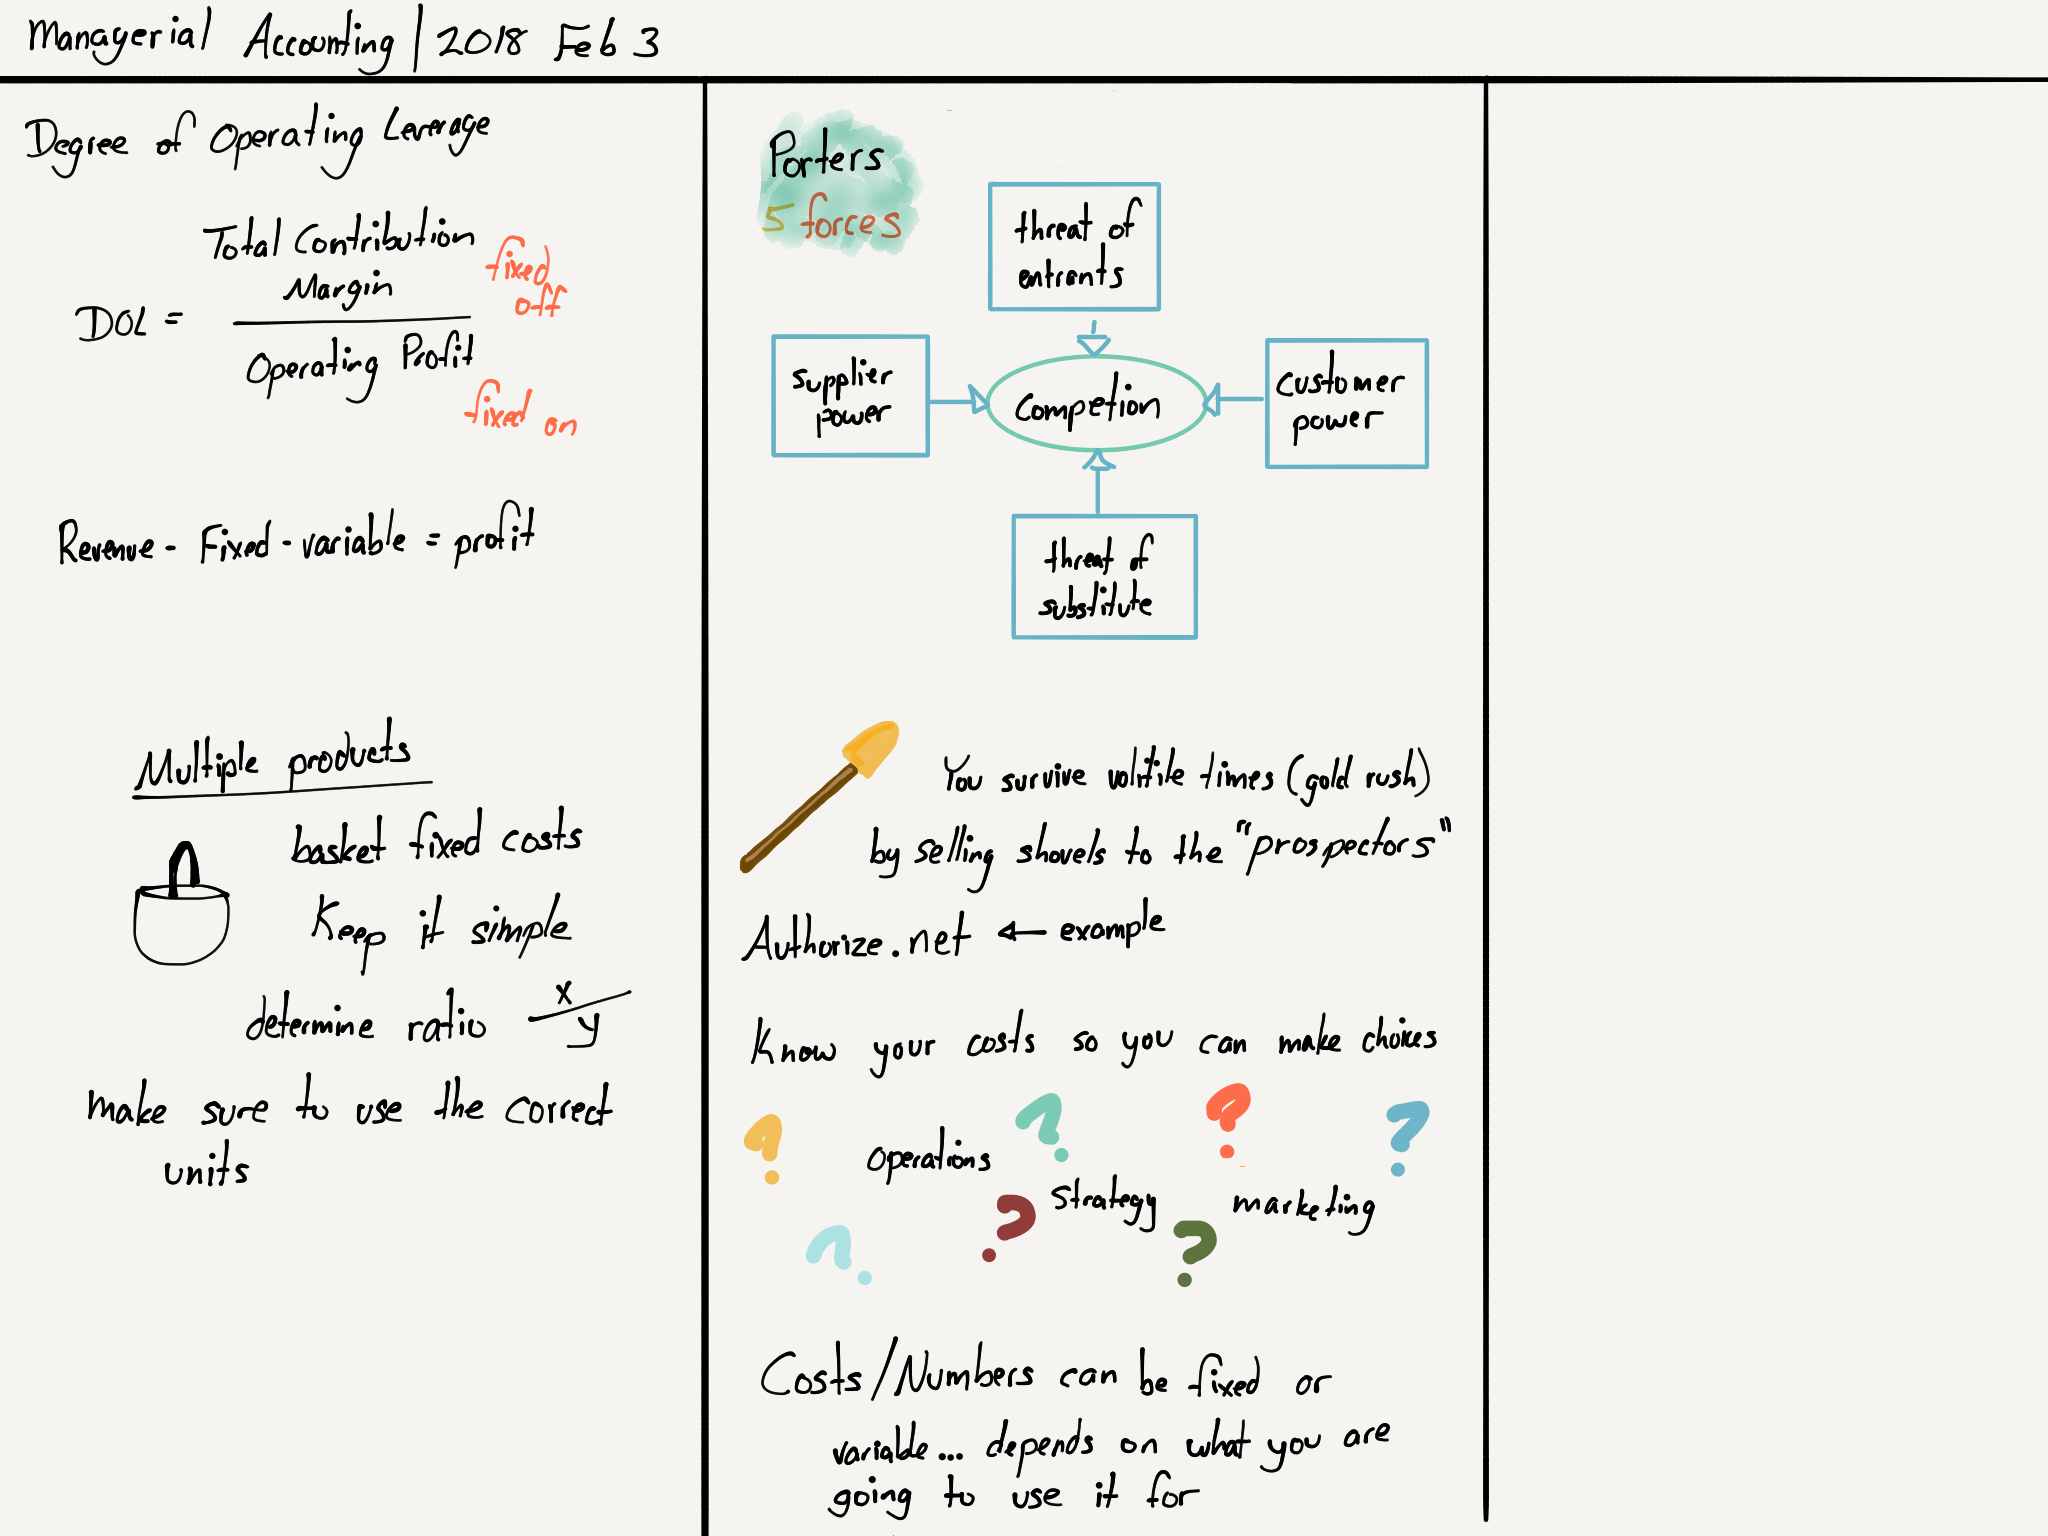 Managerial Accounting | 2018 Feb 3
Degree of Operating Leverage
Total Contribution
Margin
fixed
off
DOL =
Operating Profit
fixed on
Revenue - Fixed - variable = profit
Multiple products
basket fixed costs
Keep it simple
determine ratio x/y
make sure to use the correct
units
Porters
5 forces
threat of
entrants
supplier
power
Competion
customer
power
threat of
substitute
You survive voltile times (gold rush)
by selling shovels to the "prospectors"
Authorize.net ← example
Know your costs so you can make choices
? ? ? ?
operations
strategy
marketing
? ? ?
Costs/Numbers can be fixed or
variable... depends on what you are
going to use it for